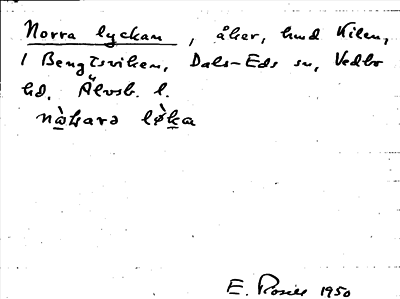 Norra lyckan, åker, hmd Kilen,
i Bengtsviken, Dals-Eds sn, Vedbo
hd, Älvsb. l.
E. Rosell 1950